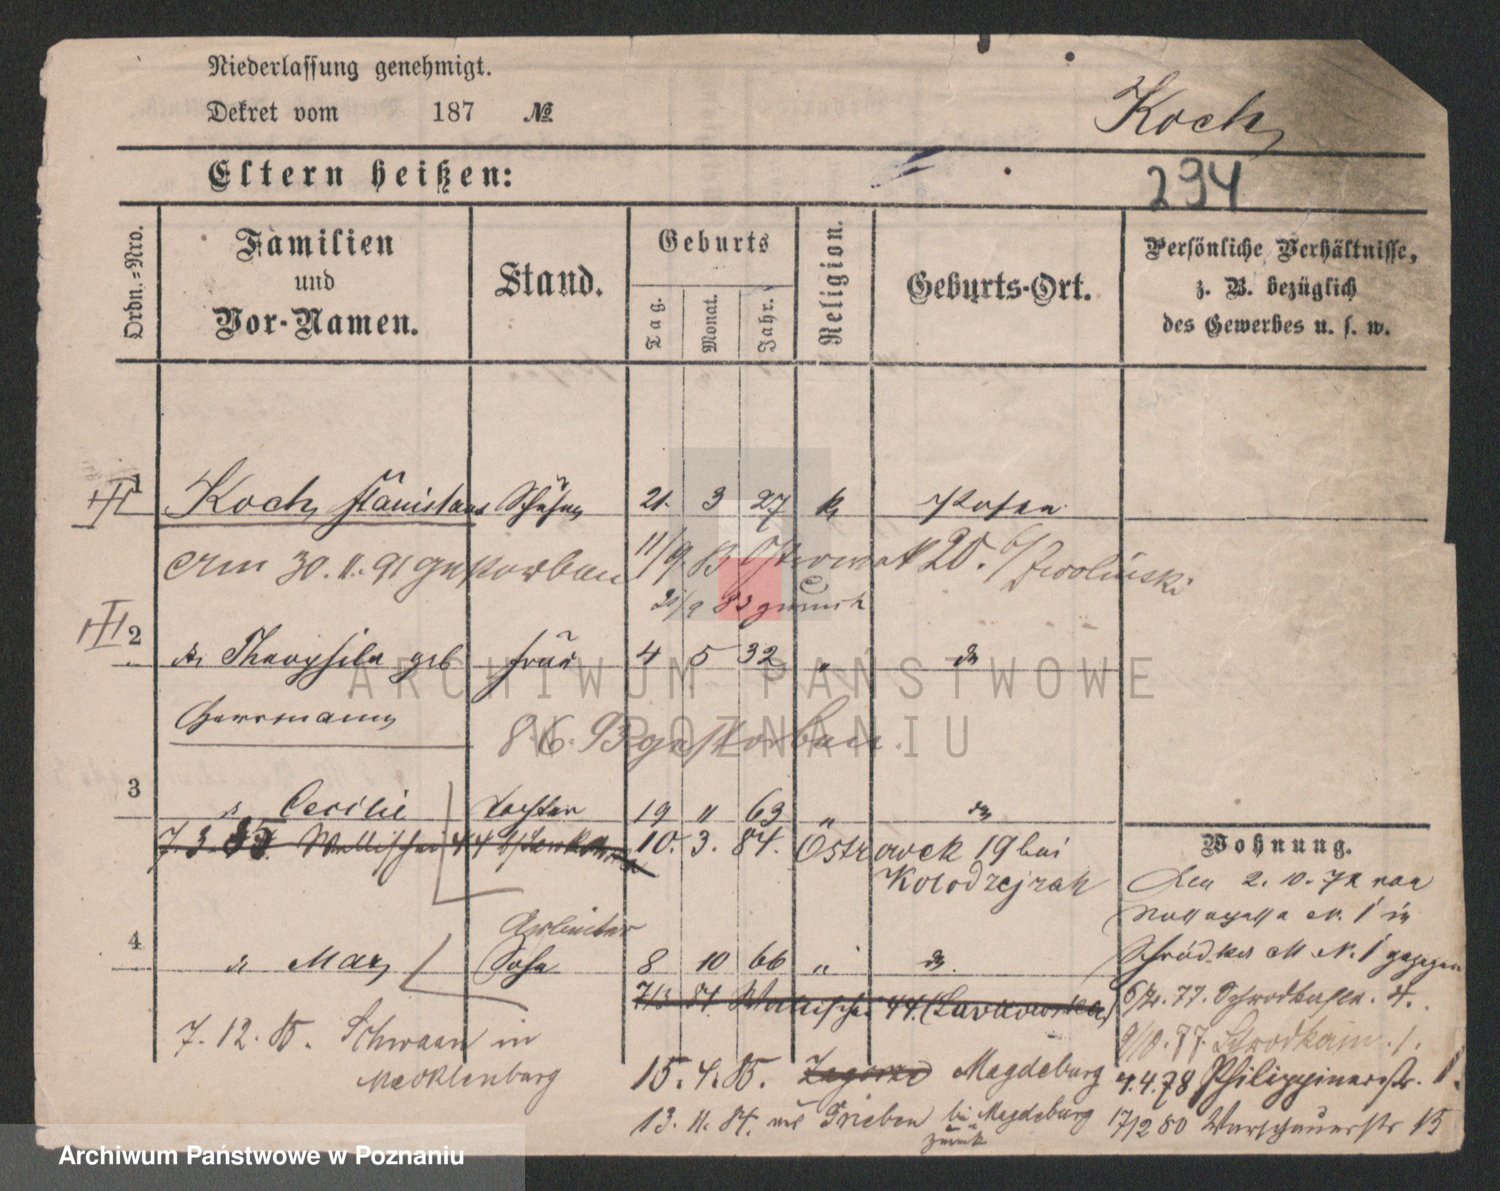 Niederlassung genehmigt.
Dekret vom 187 №
Koch
Eltern heißen:
294
Ordn.=Nro.
Familien
und
Vor-Namen.
Stand.
Geburts
Tag.
Monat.
Jahr.
Religion.
Geburts-Ort.
Persönliche Verhältnisse,
z. B. bezüglich
des Gewerbes u. s. w.
1 Koch Stanislaus 21. 3 27 k Posen
Am 30.11.91 gestorben 11/9. 83 Ostrowek 20. b/ Zwolinski
21/9 83 zurück
2 Theophila geb Frau 4 5 32 " do
Herrmann
8.6.93 gestorben.
3 Cecilie Tochter 19 " 63 " do
7.3.85 Wallischei 44 10. 3. 84. Ostrowek 19 bei
Kolodzejzak
Wohnung.
Den 2.10.72 von
4 Max Sohn 8 10 66 " do.
7/3 84 Wallischei 44
6/4. 77. Schrodkastr. 4.
7.12.85. Schwaan in
Mecklenburg
9/10.77. Schrodkam. 1.
15.4.85. Zagorze Magdeburg
4.4.78 Philippinerstr. 1.
13.11.84. Grieben bei Magdeburg
zurück
17/2 80 Warschauerstr 15
ARCHIWUM PAŃSTWOWE
W POZNANIU
Archiwum Państwowe w Poznaniu